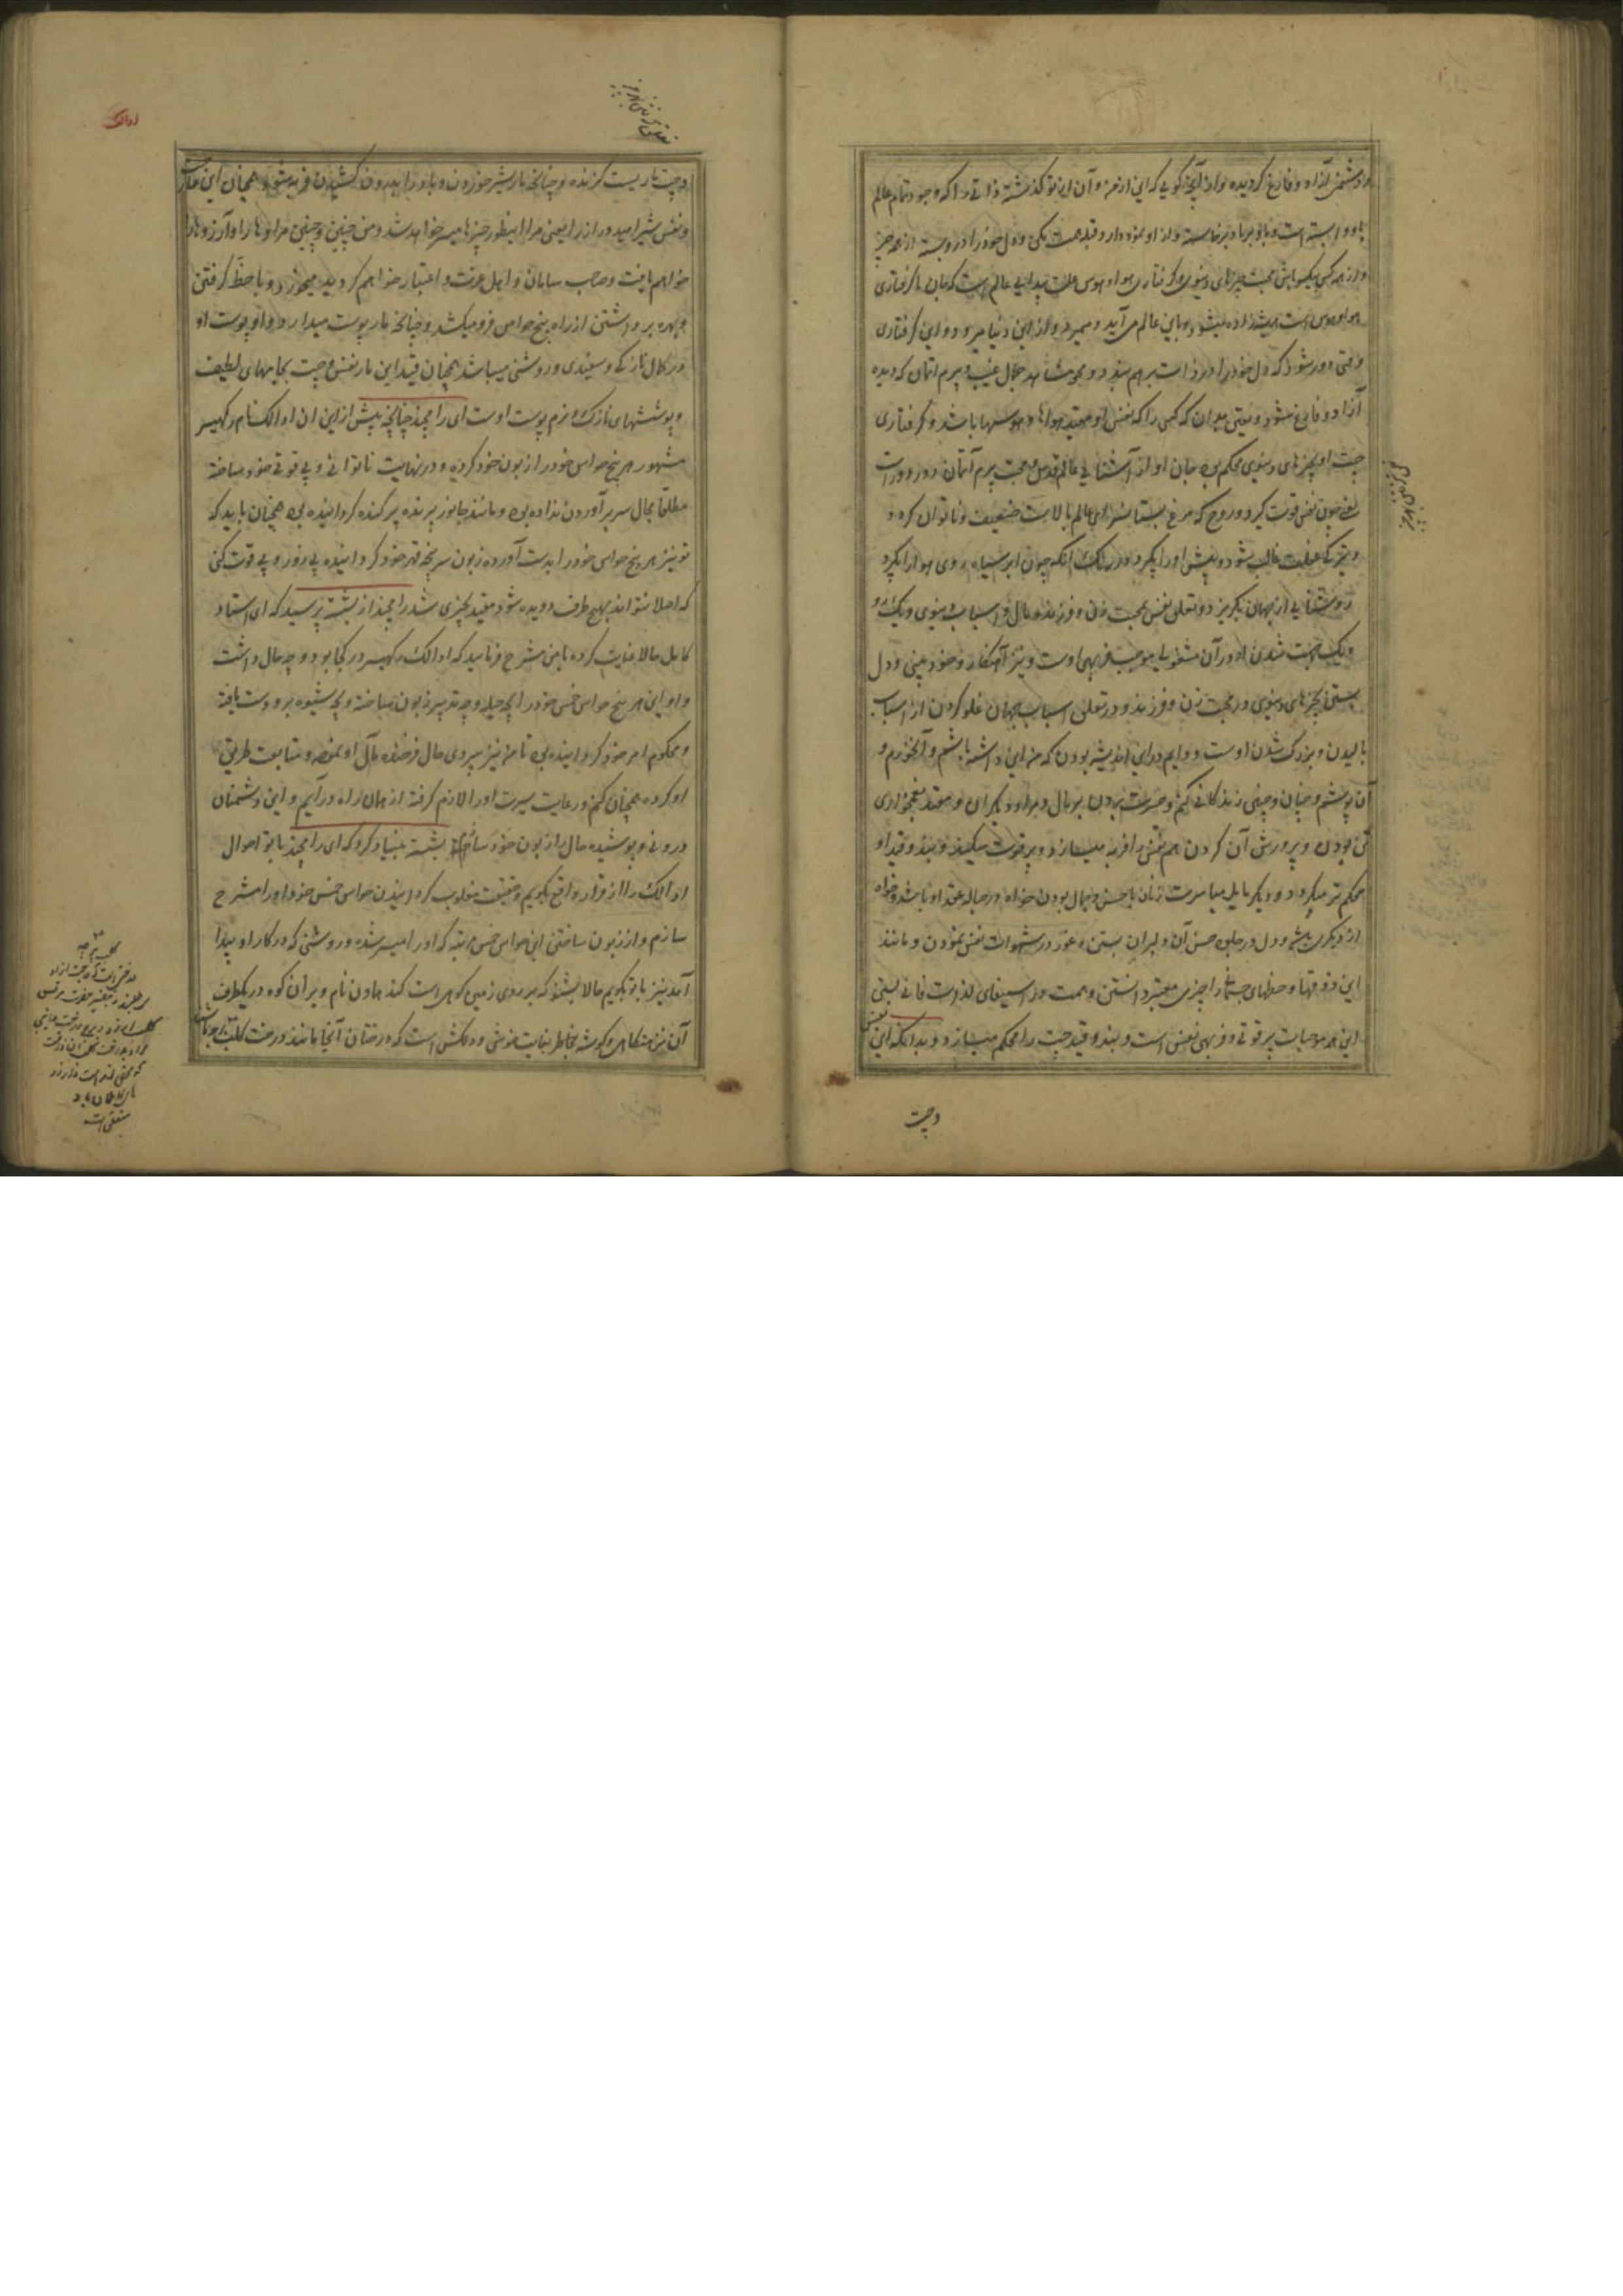 و دشمن آزاد و فارغ گردیده و از آنچه گویی که این از من و آن از تو گذشته ذاتی را که وجود تمام عالم
باو وابسته است و باو برپا و برخاسته و از او نمودار و قبله همت بکن و دل خود را در و بسته از همه چیز
و از همه کس یکسو باش محبت چیزهای دنیوی و گرفتاری هوا و هوس علت پیدایی عالم است که جان با گرفتاری
هوا و هوس است همیشه زاده میشود و باین عالم می آید و میمیرد و از این دنیا میرود و این گرفتاری
وقتی دور شود که دل خود را در ذات برهم بندد و محو مشاهده جمال غیب و پرم اتمان گردیده
آزاد و فارغ شود و یقین بدان که کسی را که نفس او مقید هواها و هوسها باشد و گرفتاری
چت او بچیزهای دنیوی محکم بود جان او از آشنایی عالم قدس و محبت پرم آتمان دور دور است
یعنی چون نفس قوت گیرد و روح که مرغ بستانسرای عالم بالاست ضعیف و ناتوان گردد
و تیرگی غفلت غالب شود و پیش او را بگیرد در رنگ آنکه چون ابر سیاه روی هوا را بگیرد
روشنایی از جهان بگریزد و تعلق نفس بمحبت زن و فرزند و مال و اسباب دنیوی و یک رو
و یک جهت شدن او در آن مشغولیها موجب فربهی اوست و نیز آهنکار و خودبینی و دل
بستن بچیزهای دنیوی و محبت زن و فرزند و در تعلق اسباب جهان غلو کردن از اسباب
بالیدن و بزرگ شدن اوست و دایم در این اندیشه بودن که من این داشته باشم و آن خورم و
آن پوشم و چنان و چنین زندگانی کنم و حسرت بردن بر مال و مراد دیگران و مقید غمخواری
تن بودن و پرورش آن کردن هم نفس را فربه میسازد و پر قوت میکند و بند و قید او
محکم تر میگردد و دیگر مایل مباشرت زنان با حسن و جمال بودن خواه در حباله عقد او باشد و خواه
از دیگری باشد و دل در جلوه حسن آن دلبران بستن و عمر در شهوات نفس نمودن و مانند
این ذوقها و حظهای جسمانی را چیزی معتبر دانستن و همت در استیفای لذات فانی بستن
این همه موجبات پر قوتی و فربهی نفس است و بند و قید چت را محکم میسازد و بدانکه این نفس
و چت
و چت ماریست گزنده و چنانچه مار بشیر خوردن و باد را بدرون کشیدن فربه میشود همچنان این مار چت
و نفس شیر امید دراز را یعنی مرا اینطور چیزها میسر خواهد شد و من چنین و چنین مرادها را و آرزوها را
خواهم یافت و صاحب سامان و اهل عزت و اعتبار خواهم گردید میخورد و باد حظ گرفتن
و بهره برداشتن از راه پنج حواس فرو میکشد و چنانچه مار پوست میدارد و او پوست او
در کمال نازکی و سفیدی و روشنی میباشد همچنان قید این مار نفس و چت بجامهای لطیف
و پوششهای نازک و نرم پوست اوست ای رامچند چنانچه پیش از این ان اوالک نام رکهیسر
مشهور هر پنج حواس خود را زبون خود کرده و در نهایت ناتوانی و بی قوتی خود ساخته
مطلقا مجال سر برآوردن نداده بود و مانند جانور پرنده پر کنده گردانیده بود همچنان باید که
تو نیز هر پنج حواس خود را بدست آورده زبون سرپنجه قهر خود گردانیده بی زور و بی قوت کنی
که اصلا نتواند بهیچ طرف دویده شود مقید چیزی شد رامچند از بشست پرسید که ای استاد
کامل حالا عنایت کرده با من مشرح فرمایید که اوالک رکهیسر در کجا بود و چه حال داشت
و او این هر پنج حواس خمس خود را بچه حیله و چه تدبیر زبون ساخته و بچه شیوه برو دست یافته
و محکوم امر خود گردانیده بود تا من نیز پیروی حال فرخنده مآل او نموده و متابعت طریق
او کرده همچنان کنم و رعایت سیرت او را لازم گرفته از همان راه درآیم و این دشمنان
درونی و پوشیده حال را زبون خود سازم بشست بنیاد کرد که ای رامچند با تو احوال
اوالک را از قرار واقع بگویم و حقیقت مغلوب گردانیدن حواس خمس خود او را مشرح
سازم و از زبون ساختن این حواس خمس مرتبه که او را میسر شده و روشنی که در کار او پیدا
آمد نیز با تو بگویم حالا بشنو که بر روی زمین کوهی است کندهمادن نام و بر آن کوه در یکطرف
آن نشستگاهی و گوشه بخاطر بغایت خوش و دلکش است که درختان آنجا مانند درخت کلب برچه
اوالک